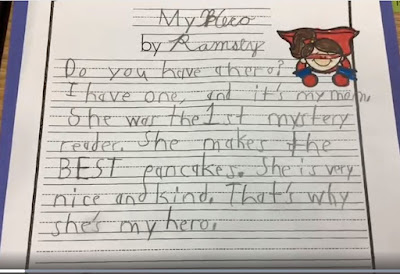 My Hero
by Ramsey
Do you have a hero?
I have one, and it's my mom.
She was the 1st mystery
reader. She makes the
BEST pancakes. She is very
nice and kind. That's why
she's my hero.